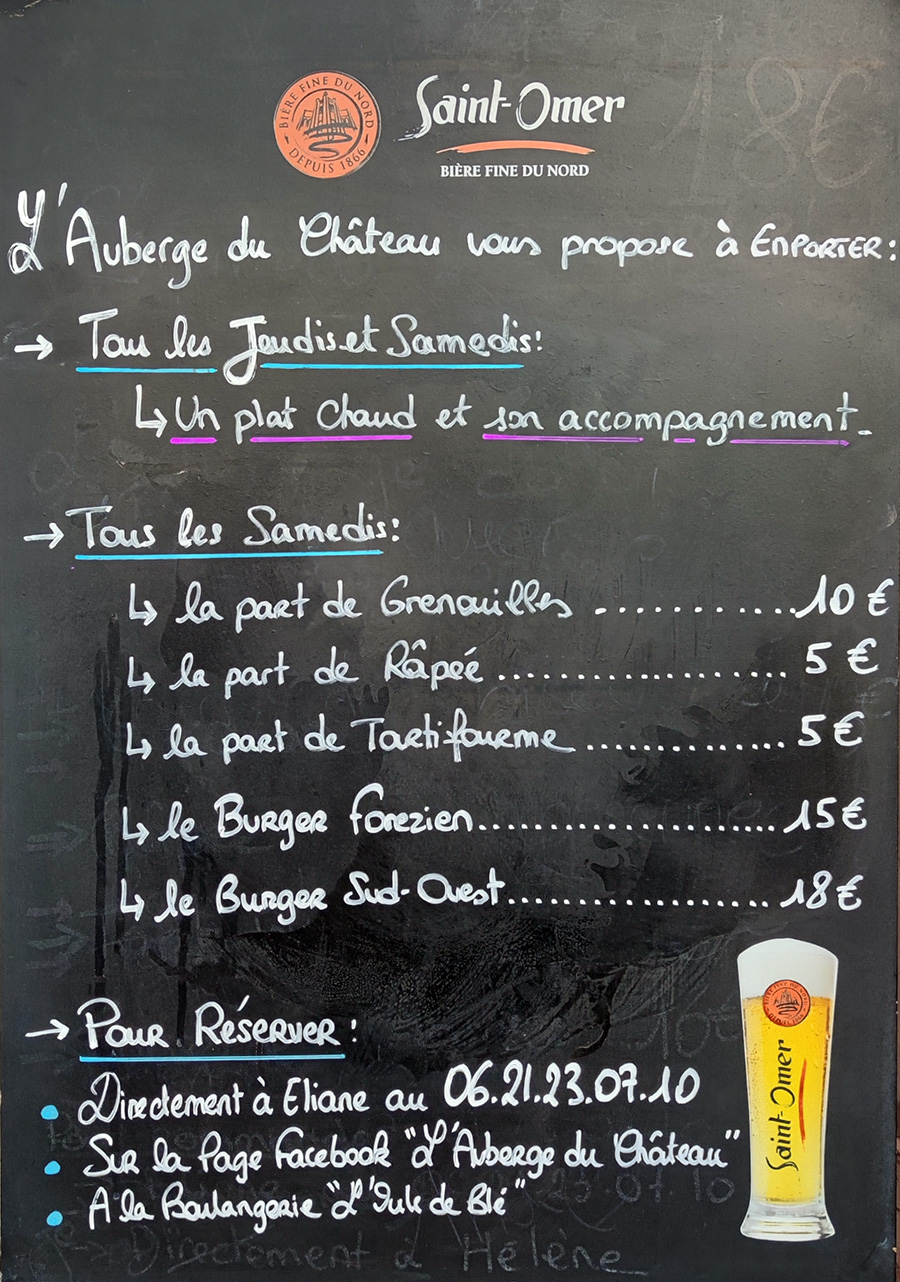 18€
BIÈRE FINE DU NORD
DEPUIS 1866
Saint-Omer
BIÈRE FINE DU NORD
L'Auberge du Château vous propose à EMPORTER :
→ Tous les Jeudis et Samedis :
↳ Un plat chaud et son accompagnement.
→ Tous les Samedis :
↳ la part de Grenouilles ........... 10 €
↳ la part de Râpéé .................. 5 €
↳ la part de Tartifourme .............. 5 €
↳ le Burger Forezien..................... 15 €
↳ le Burger Sud-Ouest................... 18 €
→ POUR RÉSERVER :
• Directement à Eliane au 06.21.23.07.10
• Sur la Page Facebook "L'Auberge du Château"
• A la Boulangerie de Blé"
Saint-Omer
Directement à Hélène